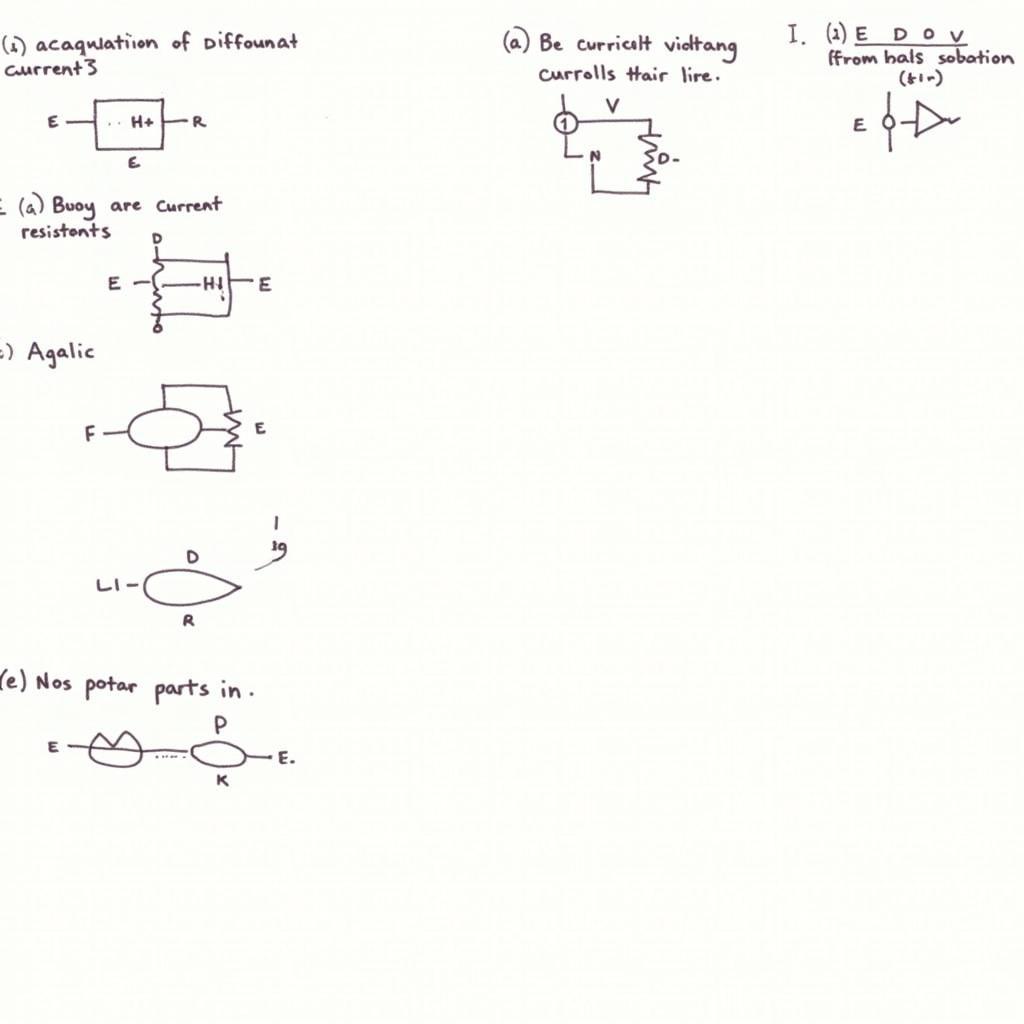 (i) acaqulatiion of Diffounat
current3
E
H+
R
E
(a) Buoy are current
resistonts
D
E
H
E
) Agalic
F
E
I
19
D
LI
R
(e) Nos potar parts in.
E
P
E.
K
(a) Be curricelt vidtang
currolls ttair lire.
V
1
N
D-
I. (i) E D O V
(from bals sobation
E